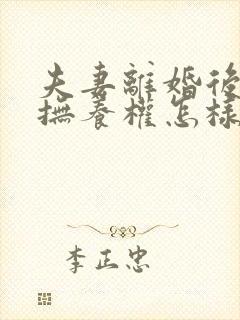 夫妻離婚後
撫養權怎樣
李正忠